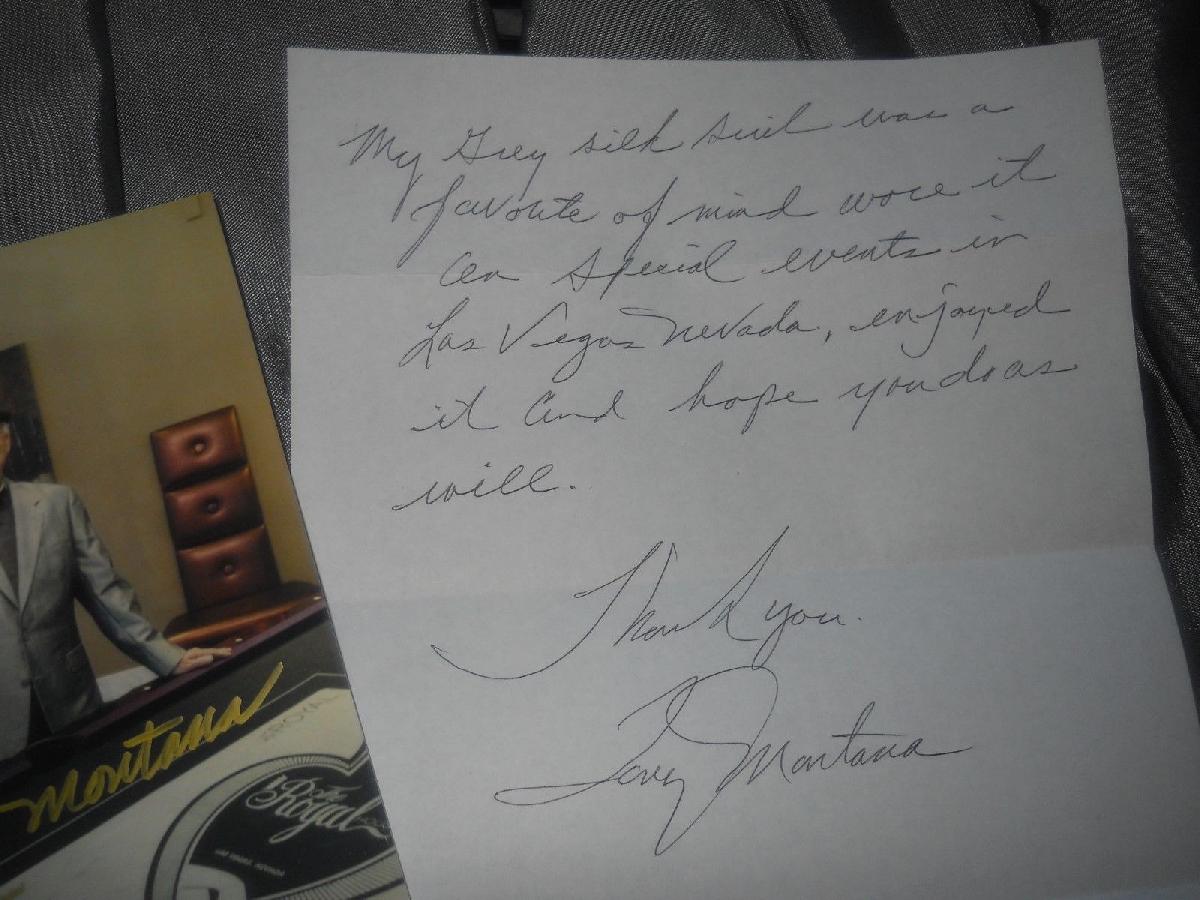 My Grey silk suit was a
favorite of mind wore it
on special events in
Las Vegas Nevada, enjoyed
it and hope you do as
will.
Thank you.
Tony Montana
Montana
The
Royal